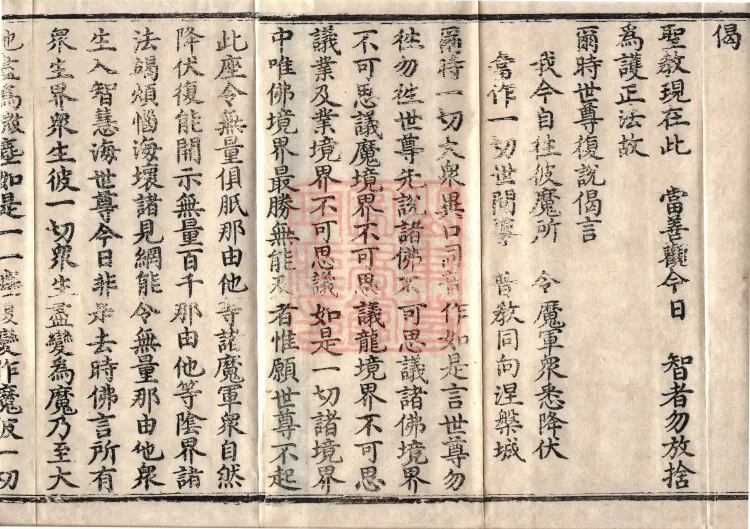 偈
聖教現在此　當善觀今日　智者勿放捨
為護正法故
爾時世尊復說偈言
我今自往彼魔所　令魔軍衆悉降伏
當作一切世間導　普教同向涅槃城
爾時一切大衆異口同音作如是言世尊勿
往勿往世尊先說諸佛不可思議諸佛境界
不可思議魔境界不可思議龍境界不可思
議業及業境界不可思議如是一切諸境界
中唯佛境界最勝無能及者惟願世尊不起
此座令無量俱胝那由他等諸魔軍衆自然
降伏復能開示無量百千那由他等陰界諸
法竭煩惱海壞諸見網能令無量那由他衆
生入智慧海世尊今日非是去時佛言所有
衆生界衆生彼一切衆生盡變為魔乃至大
地盡為微塵如是一一塵復變作魔彼一切